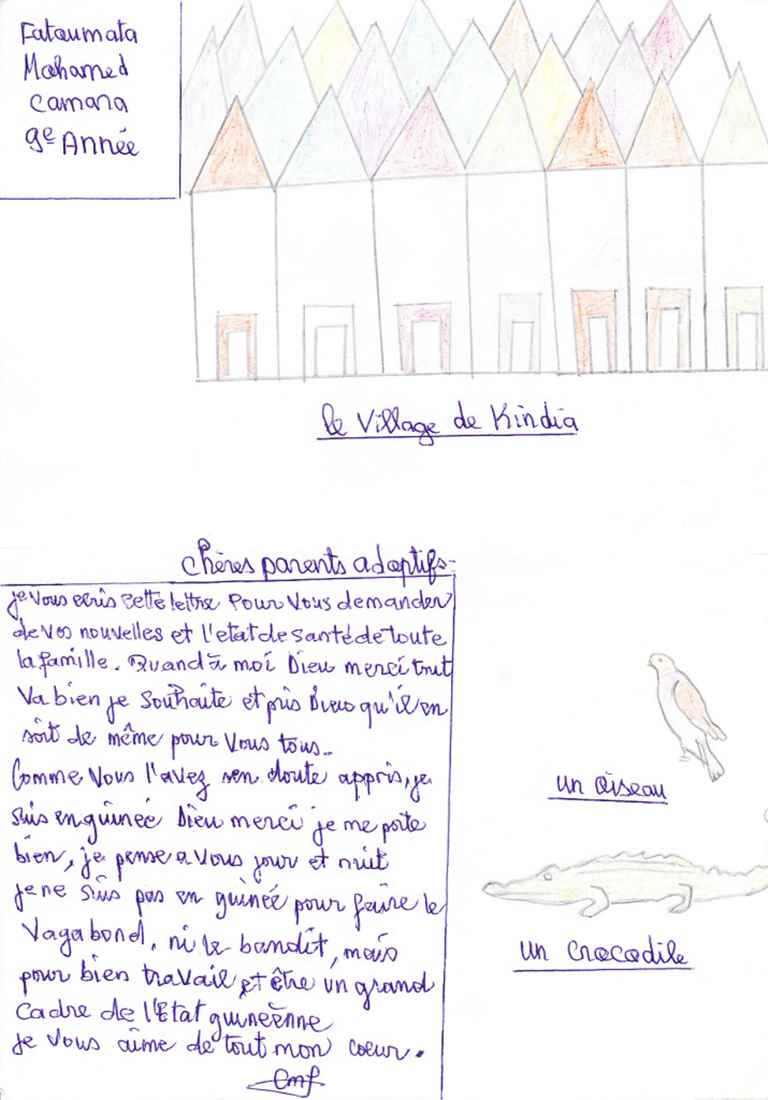 Fatoumata
Mohamed
camara
9e Année
le Village de Kindia
chères parents adoptifs-
je Vous ecris cette lettre Pour Vous demander
de Vos nouvelles et l'etat de santé de toute
la famille. Quand à moi Dieu merci tout
Va bien je Souhaite et pris Dieu qu'il en
soit de même pour Vous tous..
Comme Vous l'avez sen doute appris, je
suis en guinée Dieu merci je me porte
bien, je pense a Vous jour et nuit
je ne suis pas en guinée pour faire le
Vagabond, ni le bandit, mais
pour bien travail et être un grand
Cadre de l'Etat guineènne
je Vous aime de tout mon coeur.
Cmf
un oiseau
un crocodile